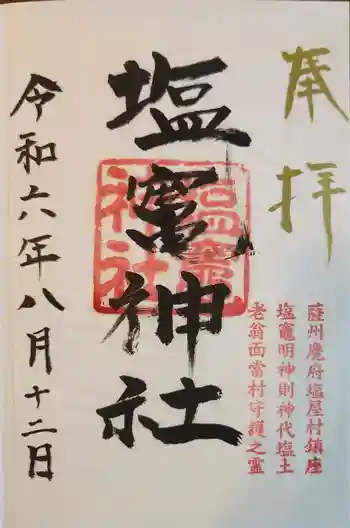 奉拝
塩竈神社
塩竈
神社
薩州麑府塩屋村鎮座
塩竈明神則神代塩土
老翁而當村守護之霊
令和六年八月十二日